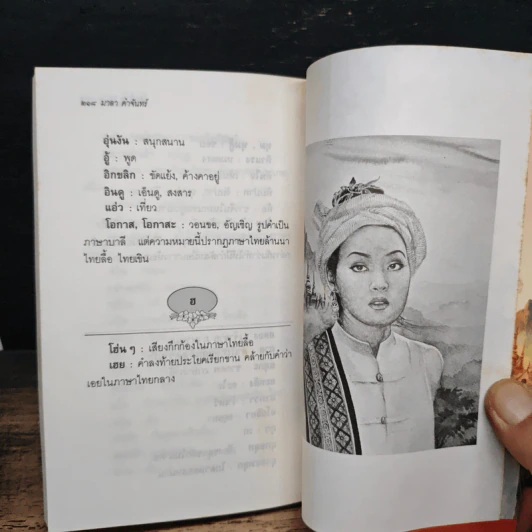 ๒๑๘ มาลา คำจันทร์
อุ๋นงัน : สนุกสนาน
อู้ : พูด
อิกขลิก : ขัดแย้ง, ค้างคาอยู่
อินดู : เอ็นดู, สงสาร
แอ่ว : เที่ยว
โอกาส, โอกาสะ : วอนขอ, อัญเชิญ รูปคำเป็น
ภาษาบาลี แต่ความหมายนี้ปรากฏภาษาไทยล้านนา
ไทยลื้อ ไทยเขิน
ฮ
โฮ่น ๆ : เสียงกึกก้องในภาษาไทยลื้อ
เฮย : คำลงท้ายประโยคเรียกขาน คล้ายกับคำว่า
เอยในภาษาไทยกลาง